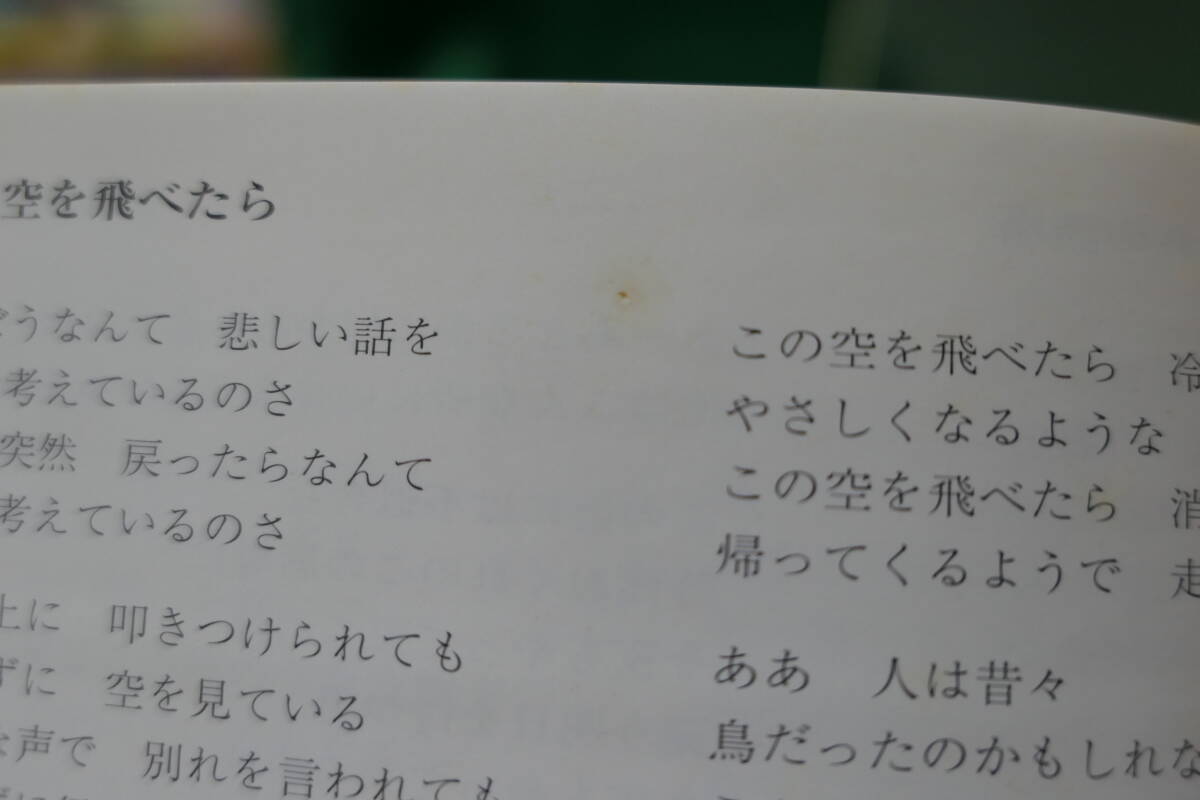 空を飛べたら
うなんて 悲しい話を
考えているのさ
突然 戻ったらなんて
考えているのさ
上に 叩きつけられても
ずに 空を見ている
声で 別れを言われても
この空を飛べたら 冷
やさしくなるような
この空を飛べたら 消
帰ってくるようで 走
ああ 人は昔々
鳥だったのかもしれな